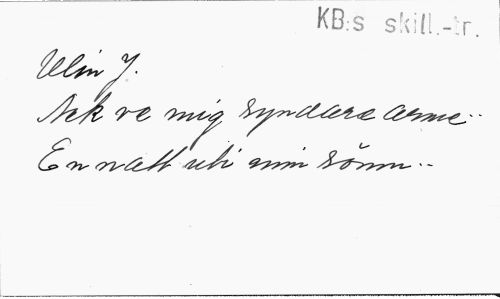 KB:s skill.-tr.
Ulin J.
Ack ve mig syndare arme..
En natt uti min sömn..